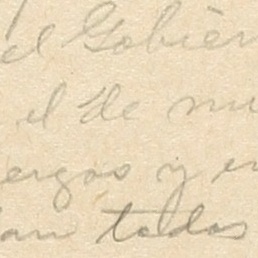 el Gobier
el de mu
ergos y en
an todos